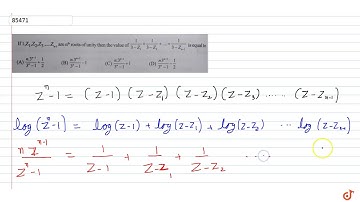 85471
If 1, Z₁, Z₂, Z₃, ..., Zₙ₋₁ are nᵗʰ roots of unity then the value of 1/(3−Z₁) + 1/(3−Z₂) + ... + 1/(3−Zₙ₋₁) is equal to
(A) n3ⁿ⁻¹/(3ⁿ−1) + 1/2 (B) n3ⁿ⁻¹/(3ⁿ−1) − 1 (C) n3ⁿ⁻¹/(3ⁿ−1) + 1 (D)
zⁿ−1 = (z−1) (z−z₁) (z−z₂) (z−z₃) ...... (z−zₙ₋₁)
log (zⁿ−1) = log (z−1) + log (z−z₁) + log (z−z₂) ... log (z−zₙ₋₁)
n zⁿ⁻¹/(zⁿ−1) = 1/(z−1) + 1/(z−z₁) + 1/(z−z₂) ...